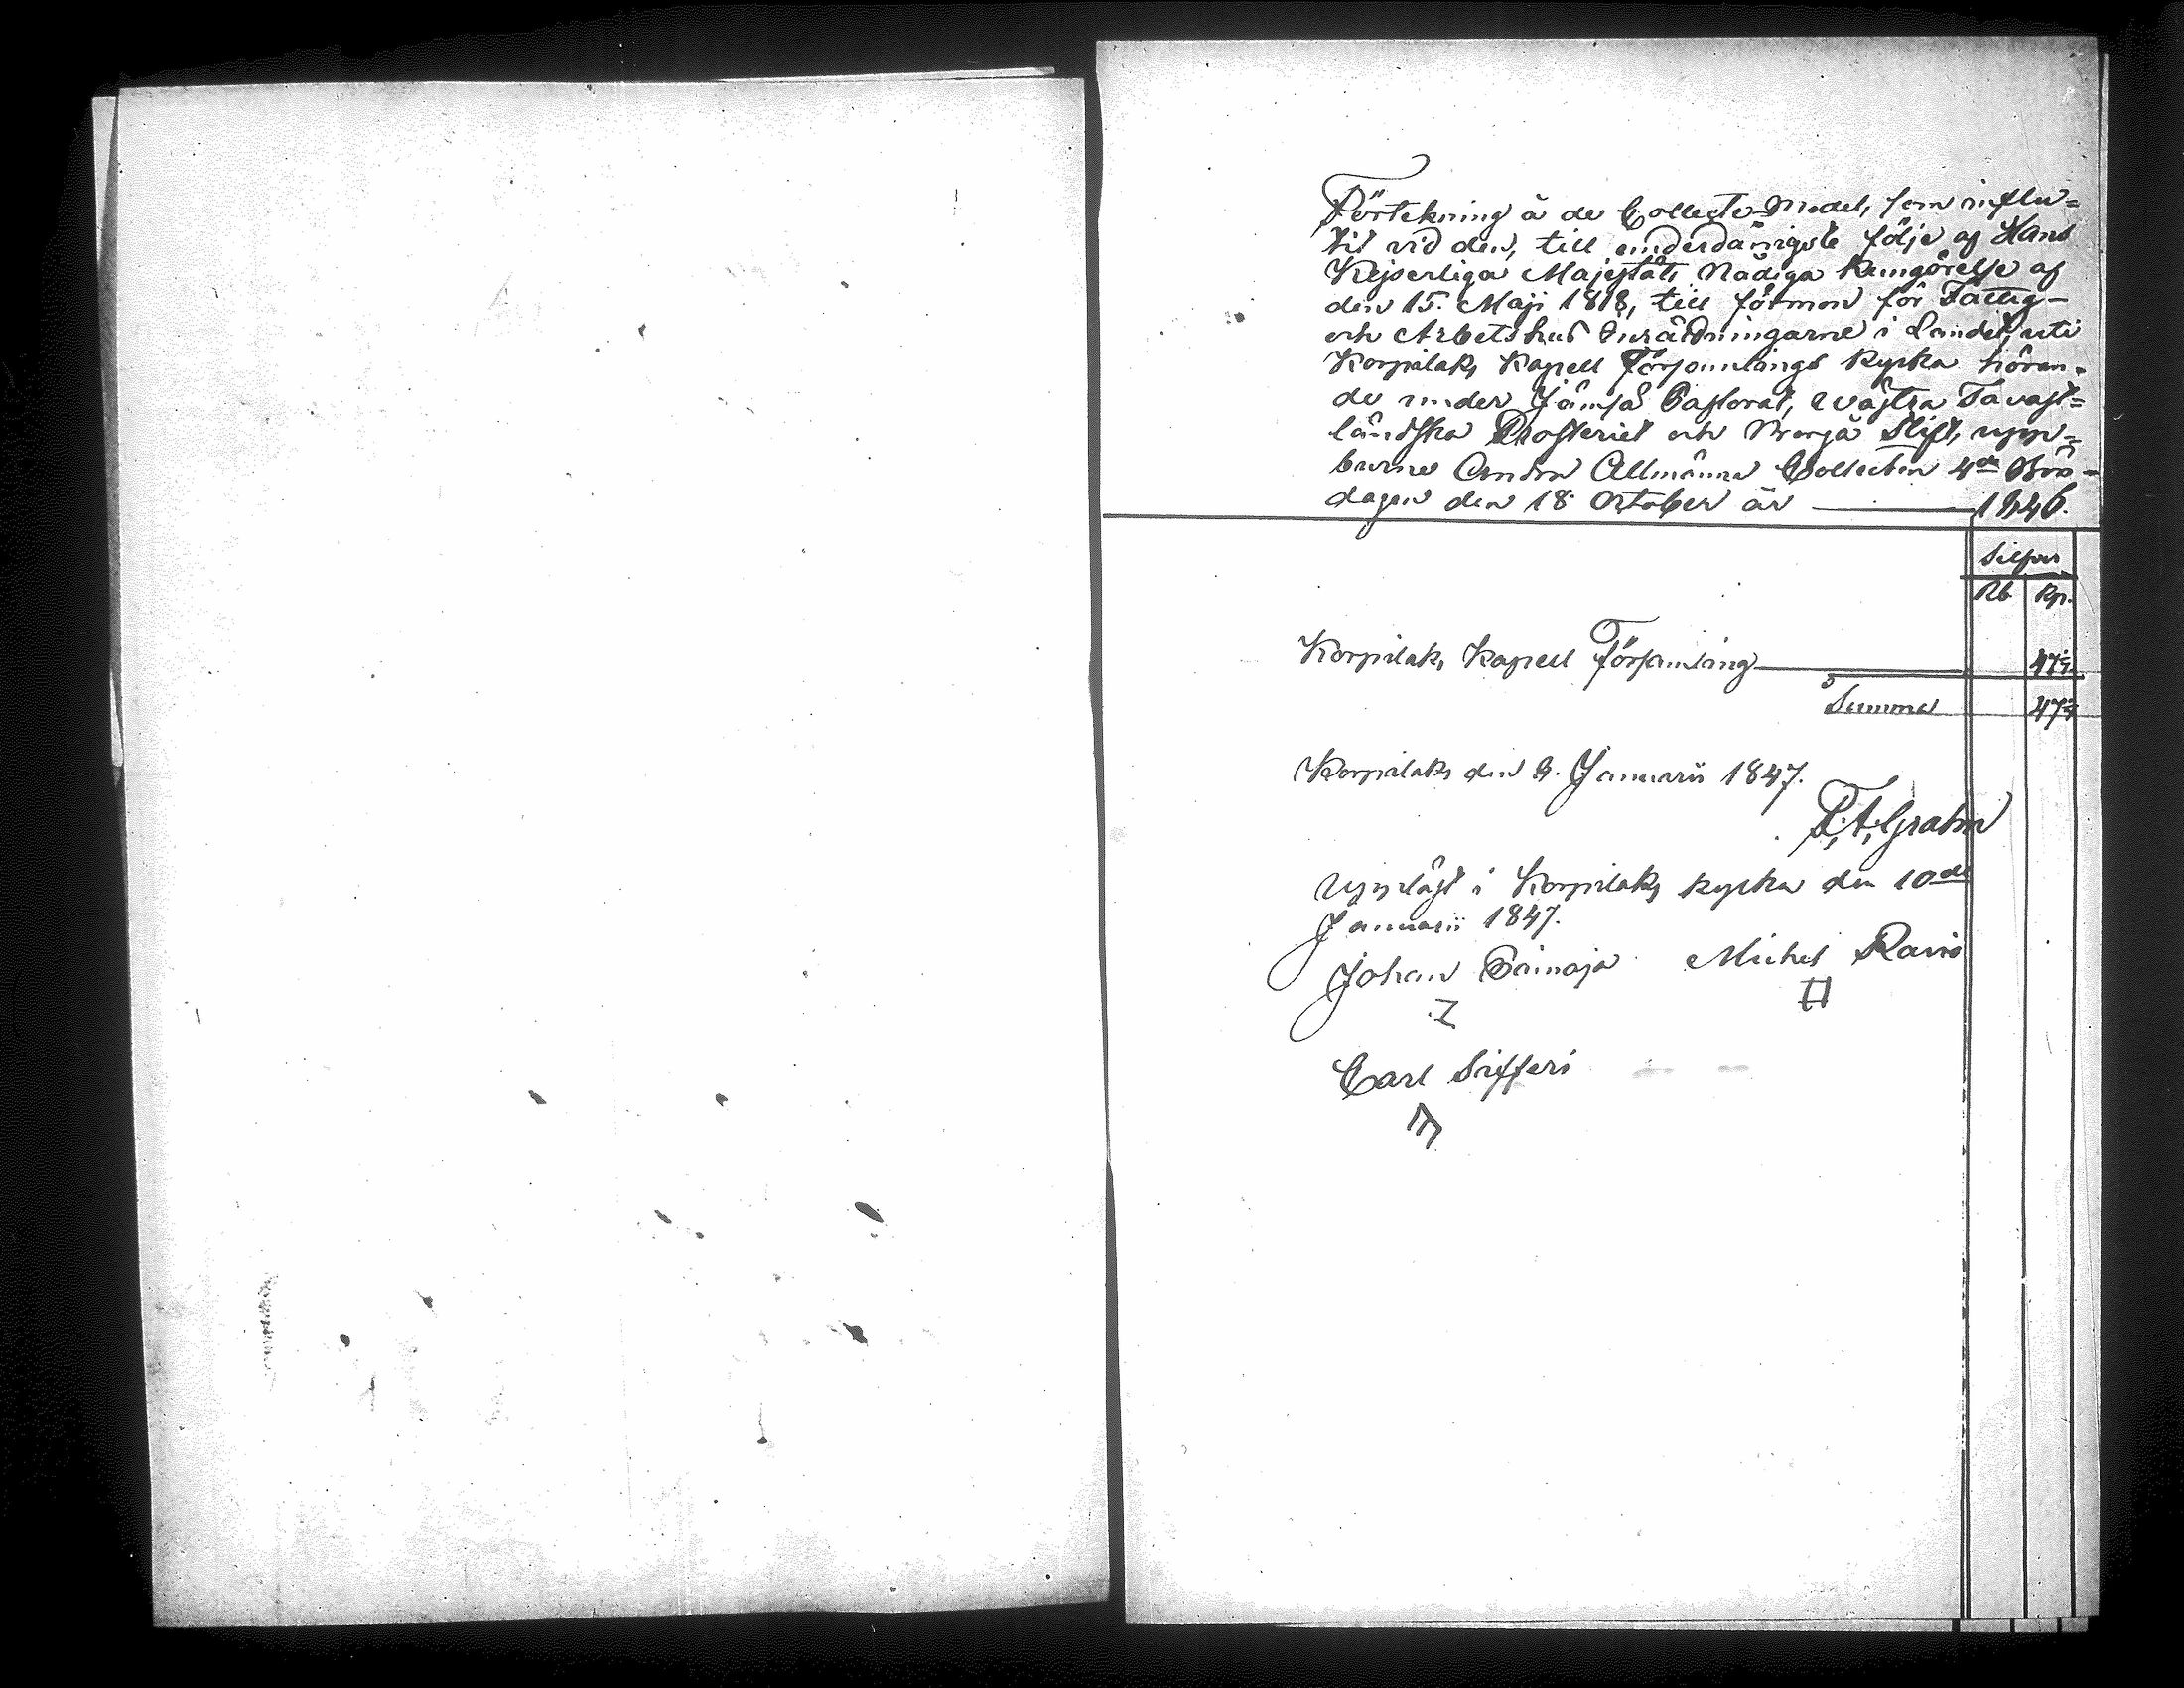 Förtekning å de Collecte-Medel, som influ=
tit vid den, till underdånigste följe af Hans
Kejserliga Majestäts Nådiga Kungörelse af
den 15. Maji 1818, till förmon för Fattig-
och Arbetshus Inrättningarne i Landet, uti
Korpilaks Kapell Församlings kyrka hören-
de under Jämsä Pastorat, Wästra Tavast=
ländska Prosteriet och Borgå Stift, upp=
burne Andra Allmänna Collecten 4de Bön-
dagen den 18 October år 1846.
Silfver
Rb. Kp.
Korpilaks Kapell Församling 47½
Summa 47½
Korpilaks den 9. Januarii 1847.
F. A. Grahn
Uppläst i Korpilaks kyrka den 10de
Januarii 1847.
Johan Michel
Carl